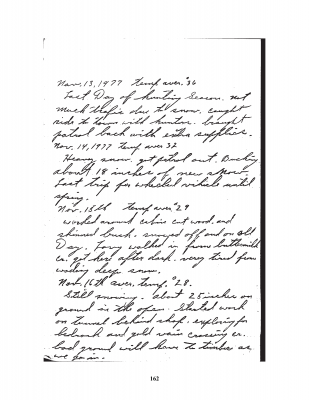 Nov. 13, 1977 temp aver. °36
Last Day of hunting Season. not
much trafic due to snow. caught
ride to town with hunter. brought
patrol back with extra supplies.
Nov. 14, 1977 temp aver 32
Heavy snow. got patrol out. Bucking
about 18 inches of new snow.
Last trip for wheeled vehicle until
spring.
Nov. 15th temp aver °29
worked around cabin cut wood, and
skinned buck. snowed off and on all
Day. Tony walked in from
cr. got here after dark. very tired from
wading deep snow.
Nov. 16th aver. temp. °28.
Still snowing. about 25 inches on
ground in the open. Started work
on tunnel behind shop. exploring for
and gold vein crossing cr.
bad ground will have to timber as
we go in.
162